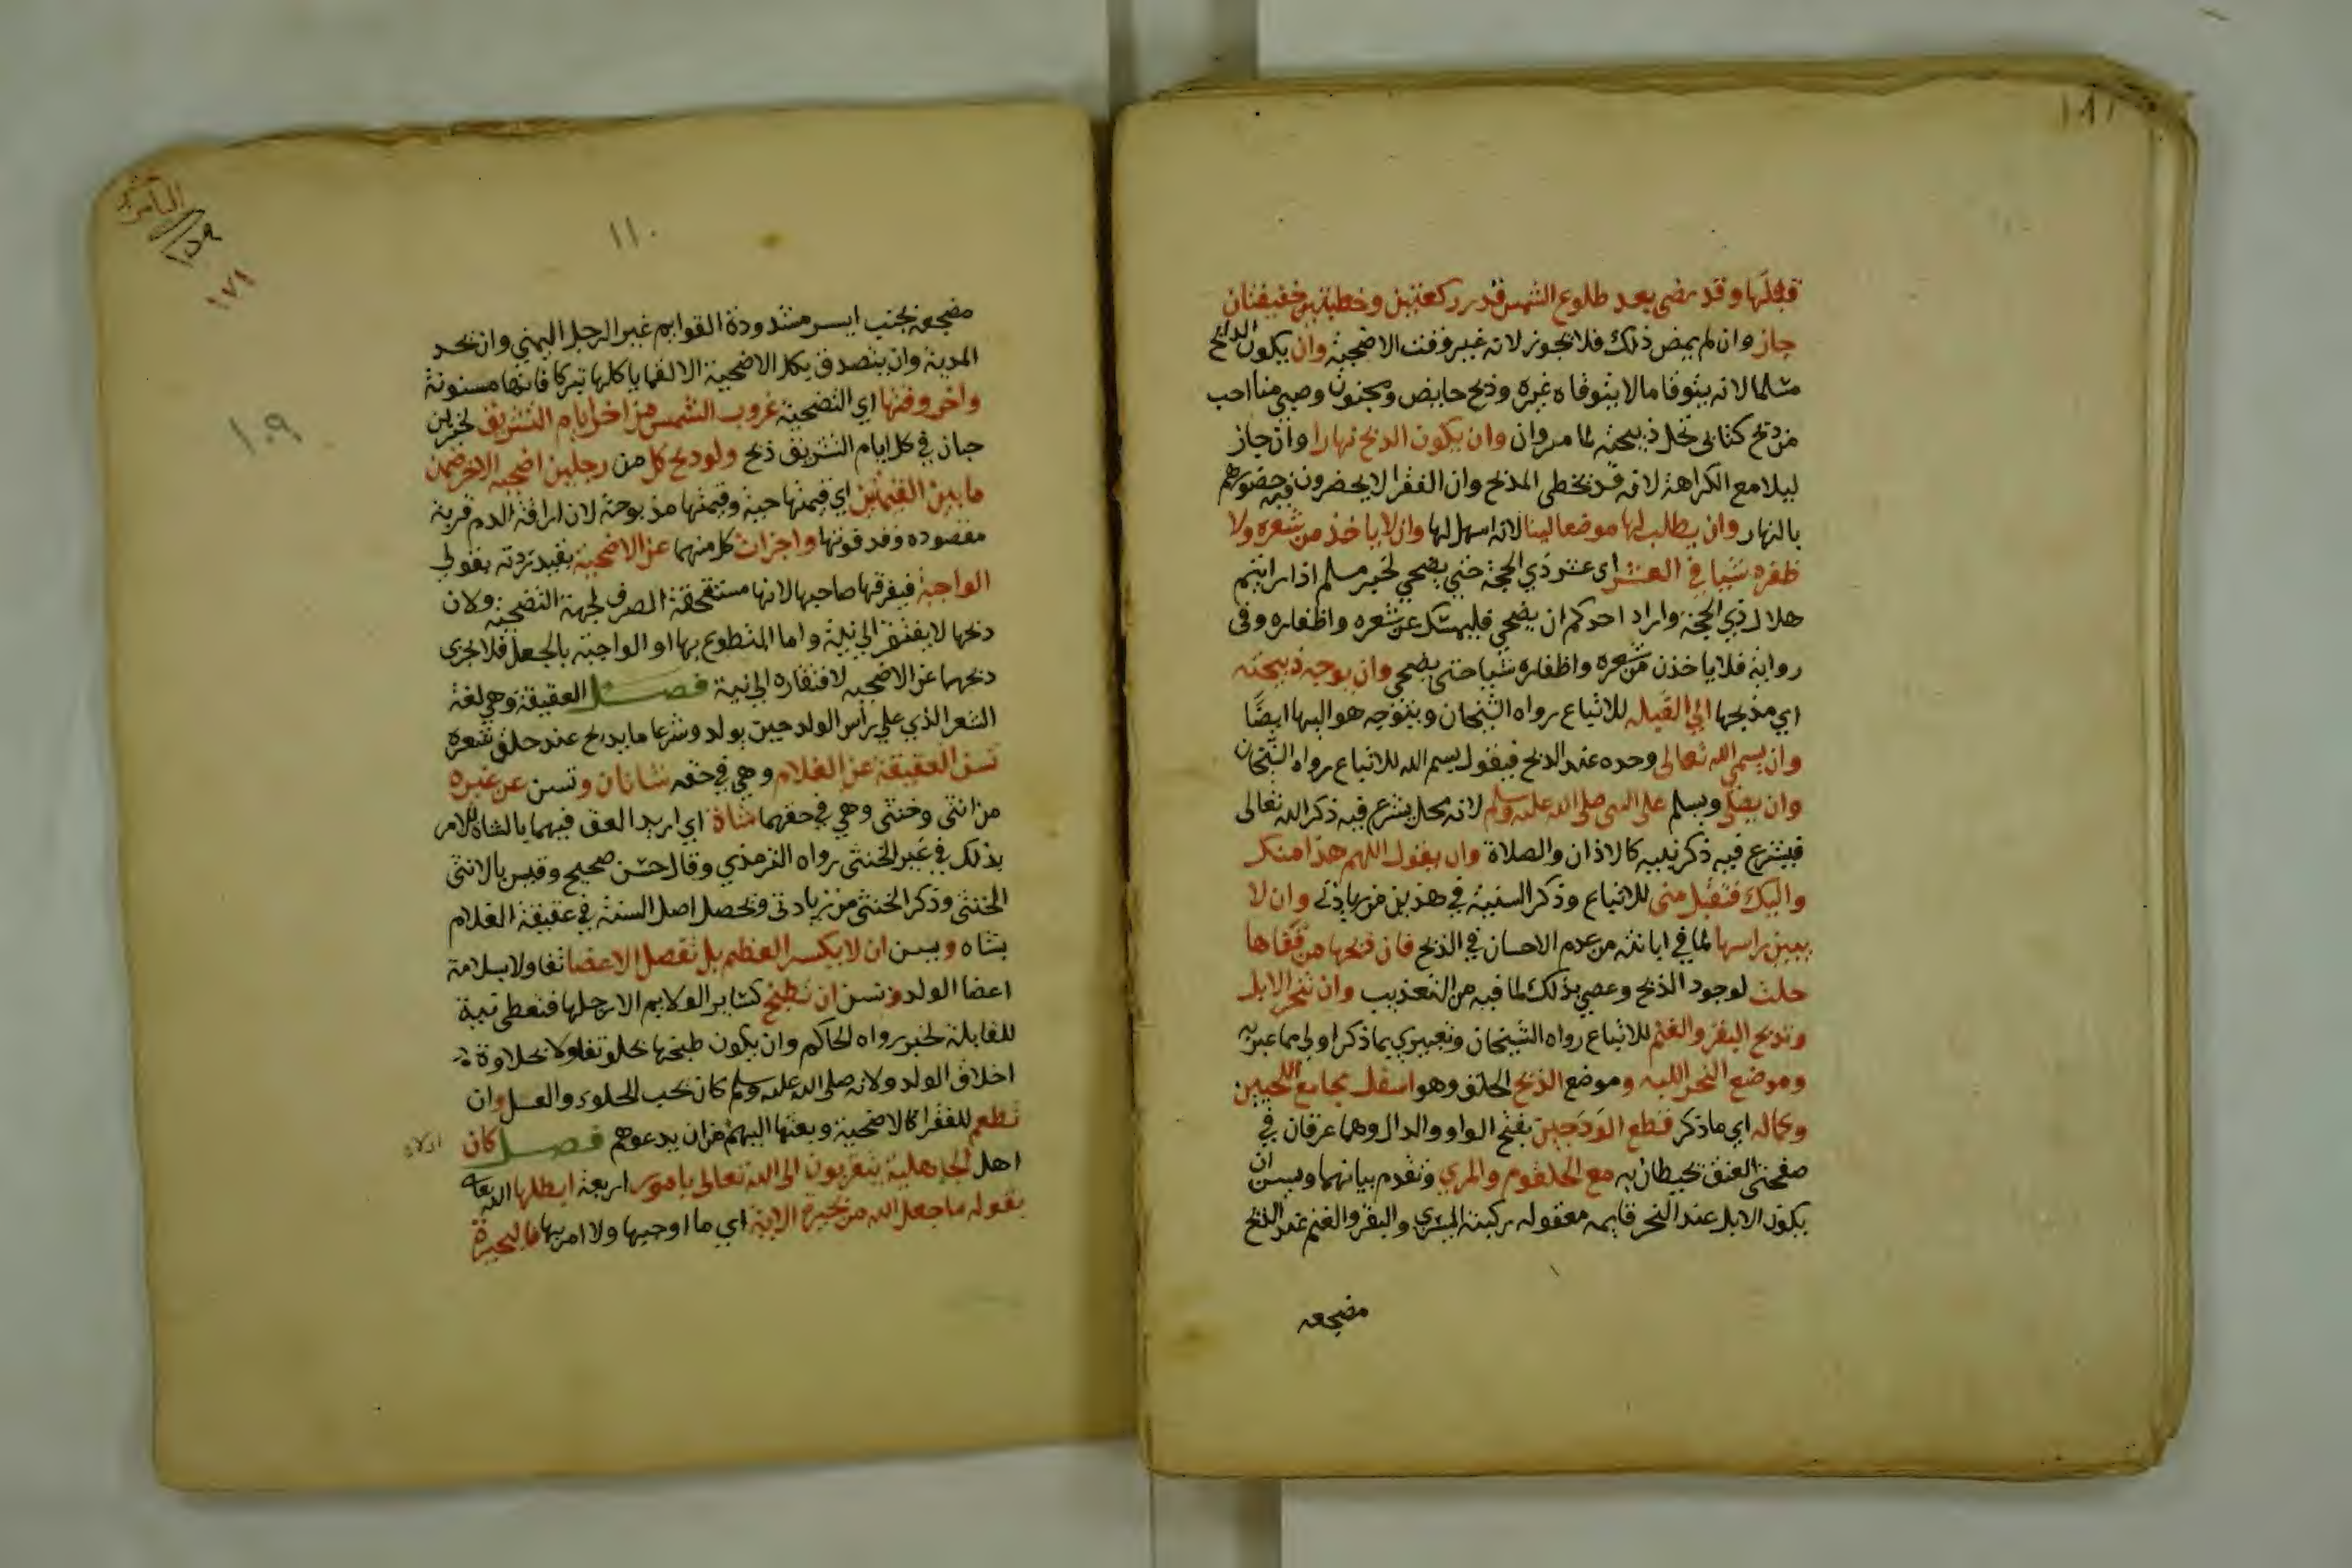 قبلها وقد مضى بعد طلوع الشمس قدر ركعتين وخطبتين خفيفتان
جاز وان لم يمض ذلك فلا تجوز لانه غير وقت الاضحية وان يكون الذابح
مسلما لانه يتوقا مالا يتوقاه غيره وذبح حايض ومجنون وصبي منا احب
من ذبح كتابي تحل ذبيحته لما مر وان وان يكون الذبح نهارا وان جاز
ليلا مع الكراهة لانه قد يخطى المذبح وان الفقرا لا يحضرون فيه حضورهم
بالنهار وان يطلب لها موضعا لينا لانه اسهل لها وان لا ياخذ من شعره ولا
ظفره شيا في العشر اى عشر ذي الحجة حتى يضحي لخبر مسلم اذا رايتم
هلال ذي الحجة واراد احدكم ان يضحي فليمسك عن شعره واظفاره وفى
رواية فلا ياخذن من شعره واظفاره شيا حتى يضحى وان يوجه ذبيحته
اي مذبحها الي القبله للاتباع رواه الشيخان ويتوجه هو اليها ايضا
وان يسمى الله تعالى وحده عند الذبح فيقول بسم الله للاتباع رواه الشيخان
وان يصلى ويسلم على النبى صلى الله عليه وسلم لانه محل يشرع فيه ذكر الله تعالى
فيشرع فيه ذكر نبيه كالاذان والصلاة وان يقول اللهم هذا منك
واليك فتقبل منى للاتباع وذكر السنية في هذين من زيادتي وان لا
يبين راسها لما في ابانته من عدم الاحسان في الذبح فان ذبحها من قفاها
حلت لوجود الذبح وعصي بذلك لما فيه من التعذيب وان تنحر الابل
وتذبح البقر والغنم للاتباع رواه الشيخان وتعبيري بما ذكر اولى مما عبر به
وموضع النحر اللبه وموضع الذبح الحلق وهو اسفل مجامع اللحيين
وكماله اي ما ذكر قطع الودجين بفتح الواو والدال وهما عرقان في
صفحتى العنق يحيطان به مع الحلقوم والمري وتقدم بيانهما ويسن ان
يكون الابل عند النحر قايمه معقوله ركبته اليسرى والبقر والغنم عند الذبح
مضجعه
١١٠
مضجعه لجنب ايسر مشدودة القوايم غير الرجل اليمني وان يحد
المدية وان يتصدق بكل الاضحية الا لقما ياكلها تبركا فانها مسنونة
واخر وقتها اي التضحية غروب الشمس من اخر ايام التشريق لخبر ابن
حبان في كل ايام التشريق ذبح ولو ذبح كل من رجلين اضحية الاخر ضمن
ما بين القيمتين اي قيمتها حية وقيمتها مذبوحة لان اراقة الدم قربة
مقصوده وقد فوتها واجزات كل منهما عن الاضحية بقيد زدته بقولي
الواجبة فيفرقها صاحبها لانها مستحقة الصرف لجهة التضحية ولان
ذبحها لا يفتقر الى نية واما المتطوع بها او الواجبة بالجعل فلا يجزى
ذبحهما عن الاضحيه لافتقاره الى نية فصل العقيقة وهي لغة
الشعر الذي علي راس الولد حين يولد وشرعا ما يذبح عند حلق شعره
تسن العقيقة عن الغلام وهي في حقه شاتان وتسن عن غيره
من انثى وخنثى وهي في حقهما شاة اي اريد العق فيهما بالشاة للامر
بذلك في غير الخنثى رواه الترمذي وقال حسن صحيح وقيس بالانثى
الخنثى وذكر الخنثى من زيادتى وتحصل اصل السنة في عقيقة الغلام
بشاه ويسن ان لا يكسر العظم بل تفصل الاعضا تفاولا بسلامة
اعضا الولد وتسن ان تطبخ كساير الولايم الا رجلها فتعطى نية
للقابلة لخبر رواه الحاكم وان يكون طبخها بحلو تفاولا بحلاوة
اخلاق الولد ولانه صلى الله عليه وسلم كان يحب الحلوى والعسل وان
تطعم للفقرا كالاضحية وبعثها اليهم من ان يدعوهم فصل كان
اهل الجاهلية يتقربون الى الله تعالى بامور اربعة ابطلها الله تعالى
بقوله ما جعل الله من بحيرة الاية اي ما اوجبها ولا امر بها فالبحيرة
١٠٩
١٥٩
١٧١